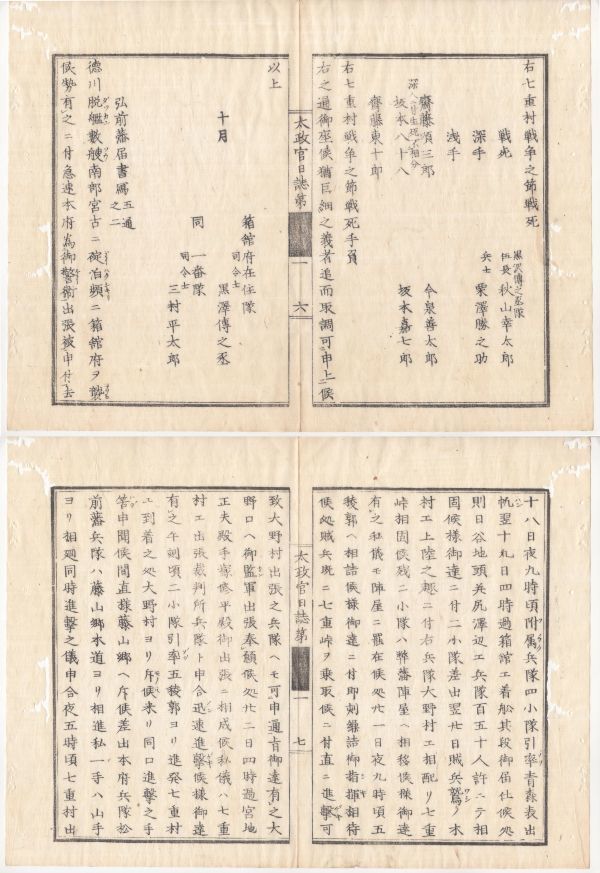 右七重村戦争之節戦死
黒沢傳之丞隊
戦死
伍長 秋山幸太郎
深手
兵士 栗澤勝之助
浅手
齋藤順三郎
今泉善太郎
深入仕生死不相分
坂本八十八
坂本嘉七郎
齋藤東十郎
右七重村戦争之節戦死手負
右之通御座候猶巨細之義者追而取調可申上候
太政官日誌第
一
六
以上
箱館府在住隊
司令士
黒澤傳之丞
十月
同 一番隊
司令士
三村平太郎
弘前藩届書寫 五通之二
徳川脱艦数艘南部宮古ニ碇泊頻ニ箱館府ヲ襲
候勢有之ニ付急速本府為御警衛出張被申付去
十八日夜九時頃附属兵隊四小隊引率青森表出
帆翌十九日四時過箱館エ着舩其段御届仕候処
則日谷地頭尻澤辺エ兵隊百五十人許ニテ相
固候様御達ニ付二小隊差出翌廿日賊兵鷲ノ木
村エ上陸之趣ニ付右兵隊大野村エ相配リ七重
峠相固候残二小隊ハ弊藩陣屋ヘ相移候様御達
有之私儀モ陣屋ニ罷在候処廿一日夜九時頃五
稜郭ヘ相詰候様御達ニ付即刻繰詰御指揮相待
候処賊兵既ニ七重峠ヲ乗取候ニ付直ニ進撃可
太政官日誌第
一
七
致大野村出張之兵隊ヘモ可申通旨御達有之大
野口ヘ御監軍出張奉願候処廿二日四時過宮地
正夫殿手塚修平殿御出張ニ相成候私儀ハ七重
村エ出張裁判所兵隊ト申合迅速進撃候様御達
有之午刻頃二小隊引率五稜郭ヨリ進発七重村
エ到着之処大野村ヨリ斥候来リ同口進撃之手
筈申聞候間直様藤山郷ヘ斥候差出本府兵隊松
前藩兵隊ハ藤山郷本道ヨリ相進私一手ハ山手
ヨリ相廻同時進撃之儀申合夜五時頃七重村出